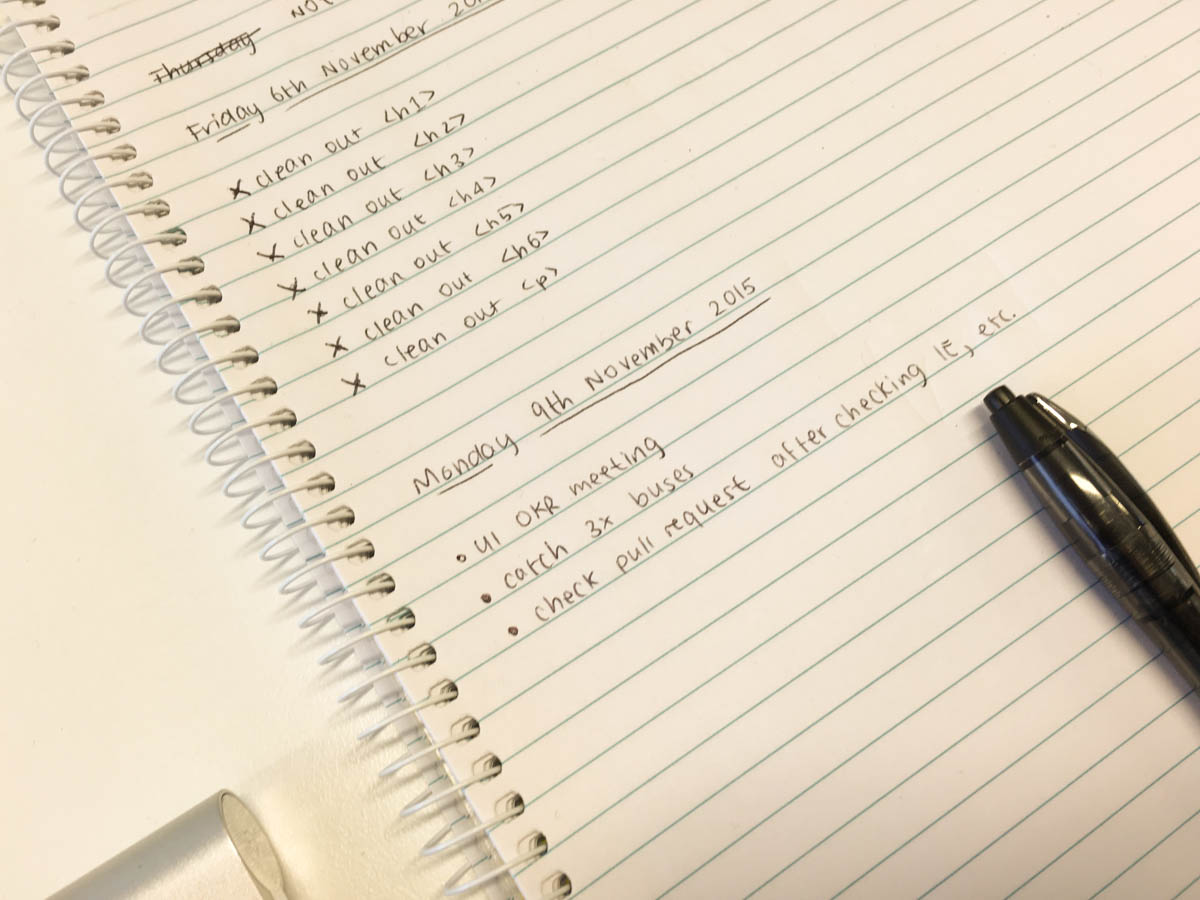 Thursday
Friday 6th November
x clean out <h1>
x clean out <h2>
x clean out <h3>
x clean out <h4>
x clean out <h5>
x clean out <h6>
x clean out <p>
Monday 9th November 2015
• UI OKR meeting
• catch 3x buses
• check pull request after checking IE, etc.